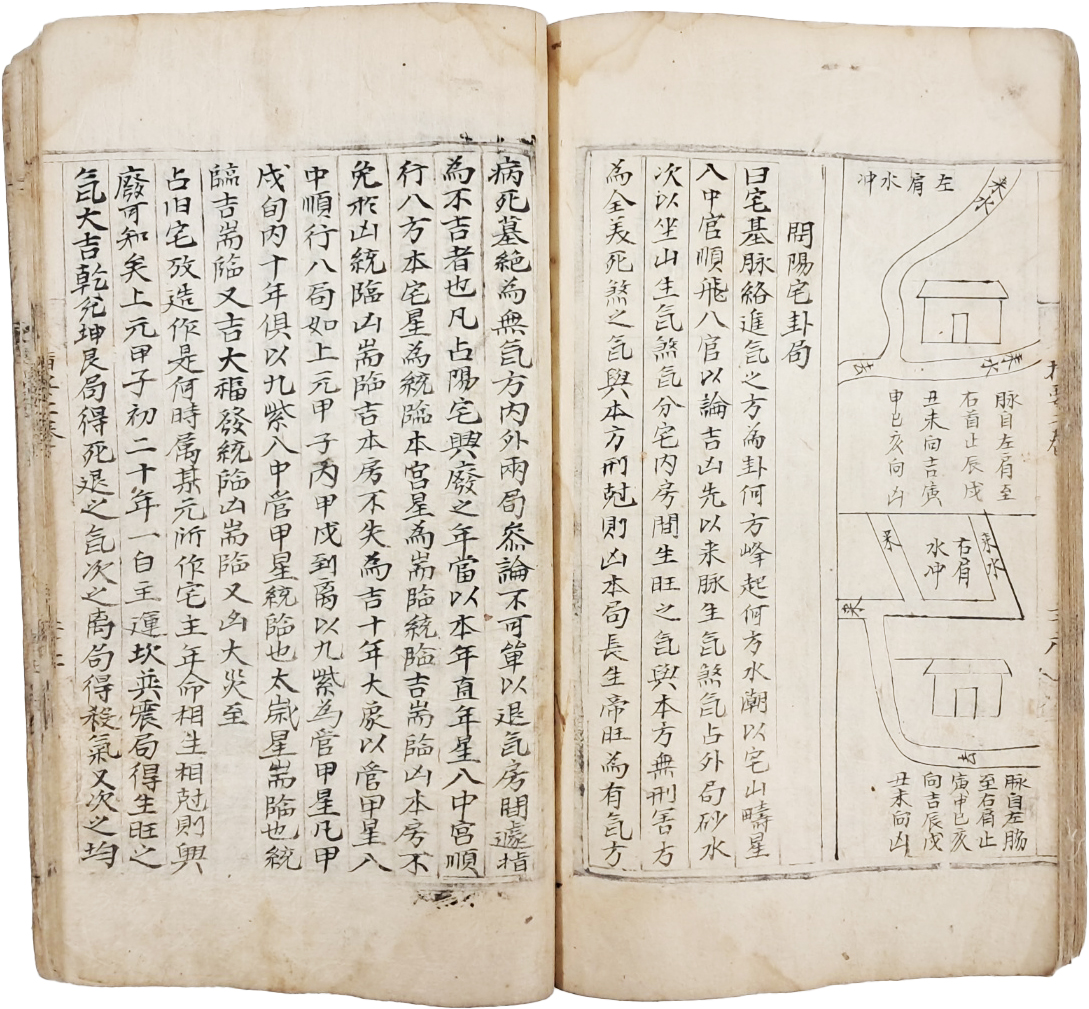 左肩水冲
来水
来水
去
脉自左肩至
右首止辰戌
丑未向吉寅
申巳亥向凶
右肩
水冲
来水
来
去
脉自左肠
至右肩止
寅申巳亥
向吉辰戌
丑未向凶
開陽宅卦局
曰宅基脉絡進氣之方為卦何方峰起何方水潮以宅山疇星
入中宫順飛八宫以論吉凶先以来脉生氣煞氣占外局砂水
次以坐山生氣煞氣分宅内房間生旺之氣與本方無刑害方
為全美死煞之氣與本方刑尅則凶本局長生帝旺為有氣方
病死墓絶為無氣方内外兩局叅論不可單以退氣房間遽指
為不吉者也凡占陽宅興廢之年當以本年直年星入中宮順
行八方本宅星為統臨本宮星為耑臨統臨吉耑臨凶本房不
免形凶統臨凶耑臨吉本房不失為吉十年大象以管甲星入
中順行八局如上元甲子丙甲戌到离以九紫為管甲星凡甲
戌旬内十年俱以九紫入中管甲星統臨也太歲星耑臨也統
臨吉耑臨又吉大福發統臨凶耑臨又凶大災至
占旧宅改造作是何時属某元所作宅主年命相生相尅則興
廢可知矣上元甲子初二十年一白主運坎巽震局得生旺之
氣大吉乾兌坤艮局得死退之氣次之离局得殺氣又次之均